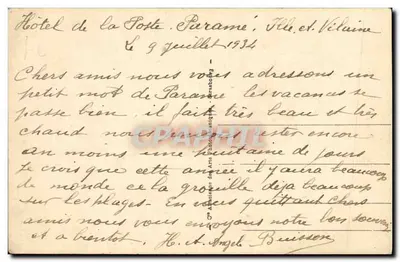 Hôtel de la Poste. Paramé. Ille et Vilaine
Le 9 juillet 1934
Chers amis nous vous adressons un
petit mot de Paramé les vacances se
passe bien il fait très beau et très
chaud nous rester encore
au moins une huitaine de jours
je crois que cette année il y aura beaucoup
de monde ce la grouille deja beaucoup
sur les plages. En vous quittant chers
amis nous vous envoyons notre bon souvenir
et a bientot. H. A. Angèle Buisson
CPAPHIL